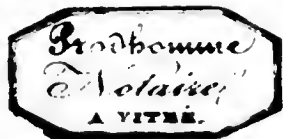 Prodhomme
Notaire
A VITRÉ.